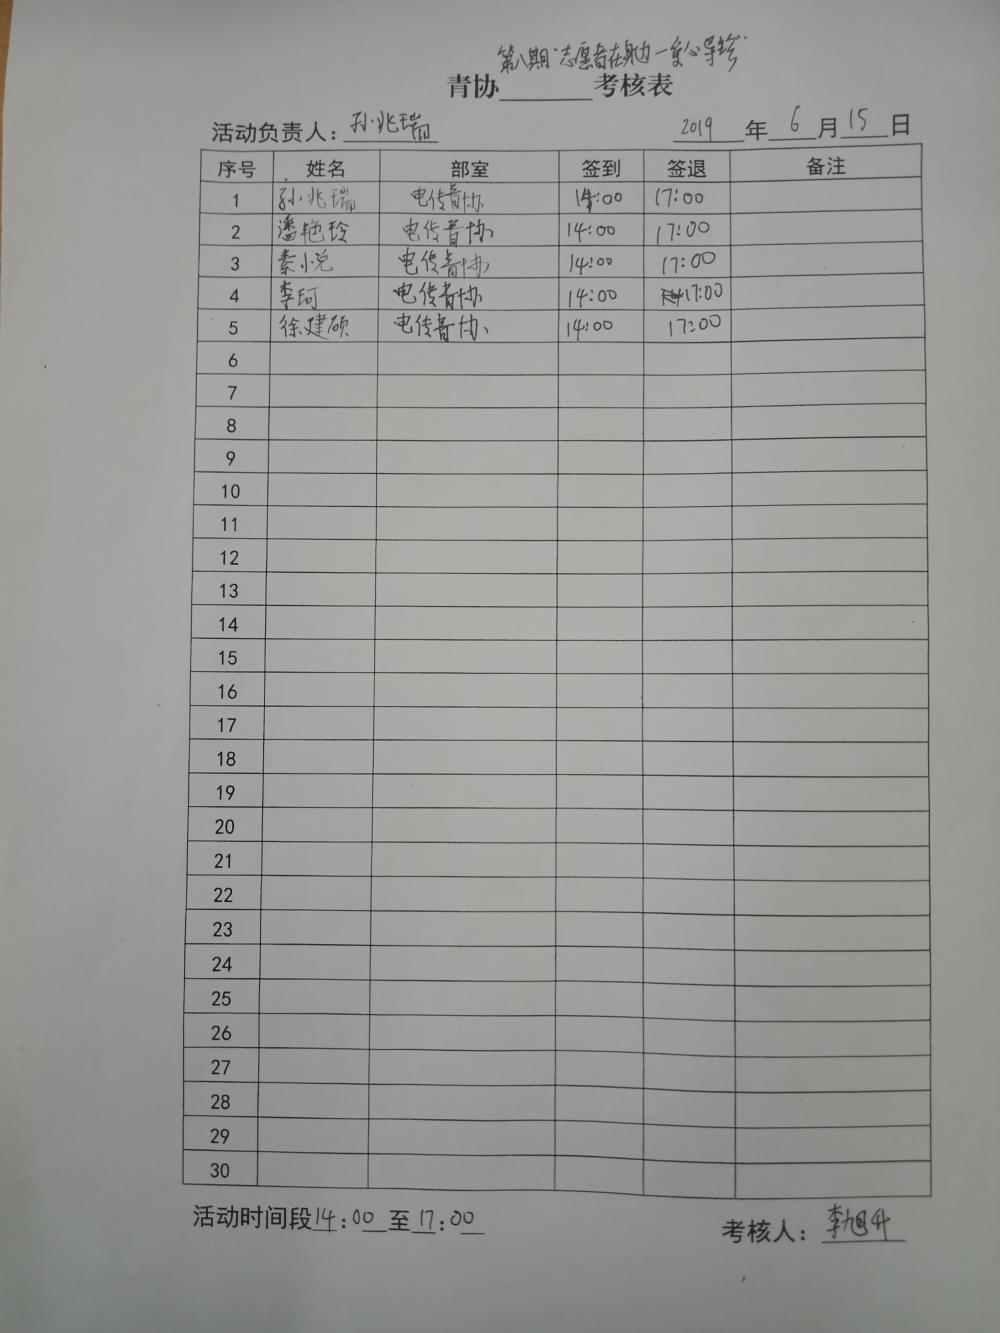 第八期"志愿者在身边—爱心导诊"
青协______考核表
活动负责人：孙兆瑞 2019年6月15日
序号 姓名 部室 签到 签退 备注
1 孙兆瑞 电传青协 14:00 17:00
2 潘艳玲 电传青协 14:00 17:00
3 秦小悦 电传青协 14:00 17:00
4 李珂 电传青协 14:00 17:00
5 徐建硕 电传青协 14:00 17:00
6
7
8
9
10
11
12
13
14
15
16
17
18
19
20
21
22
23
24
25
26
27
28
29
30
活动时间段14:00至17:00 考核人：李旭升